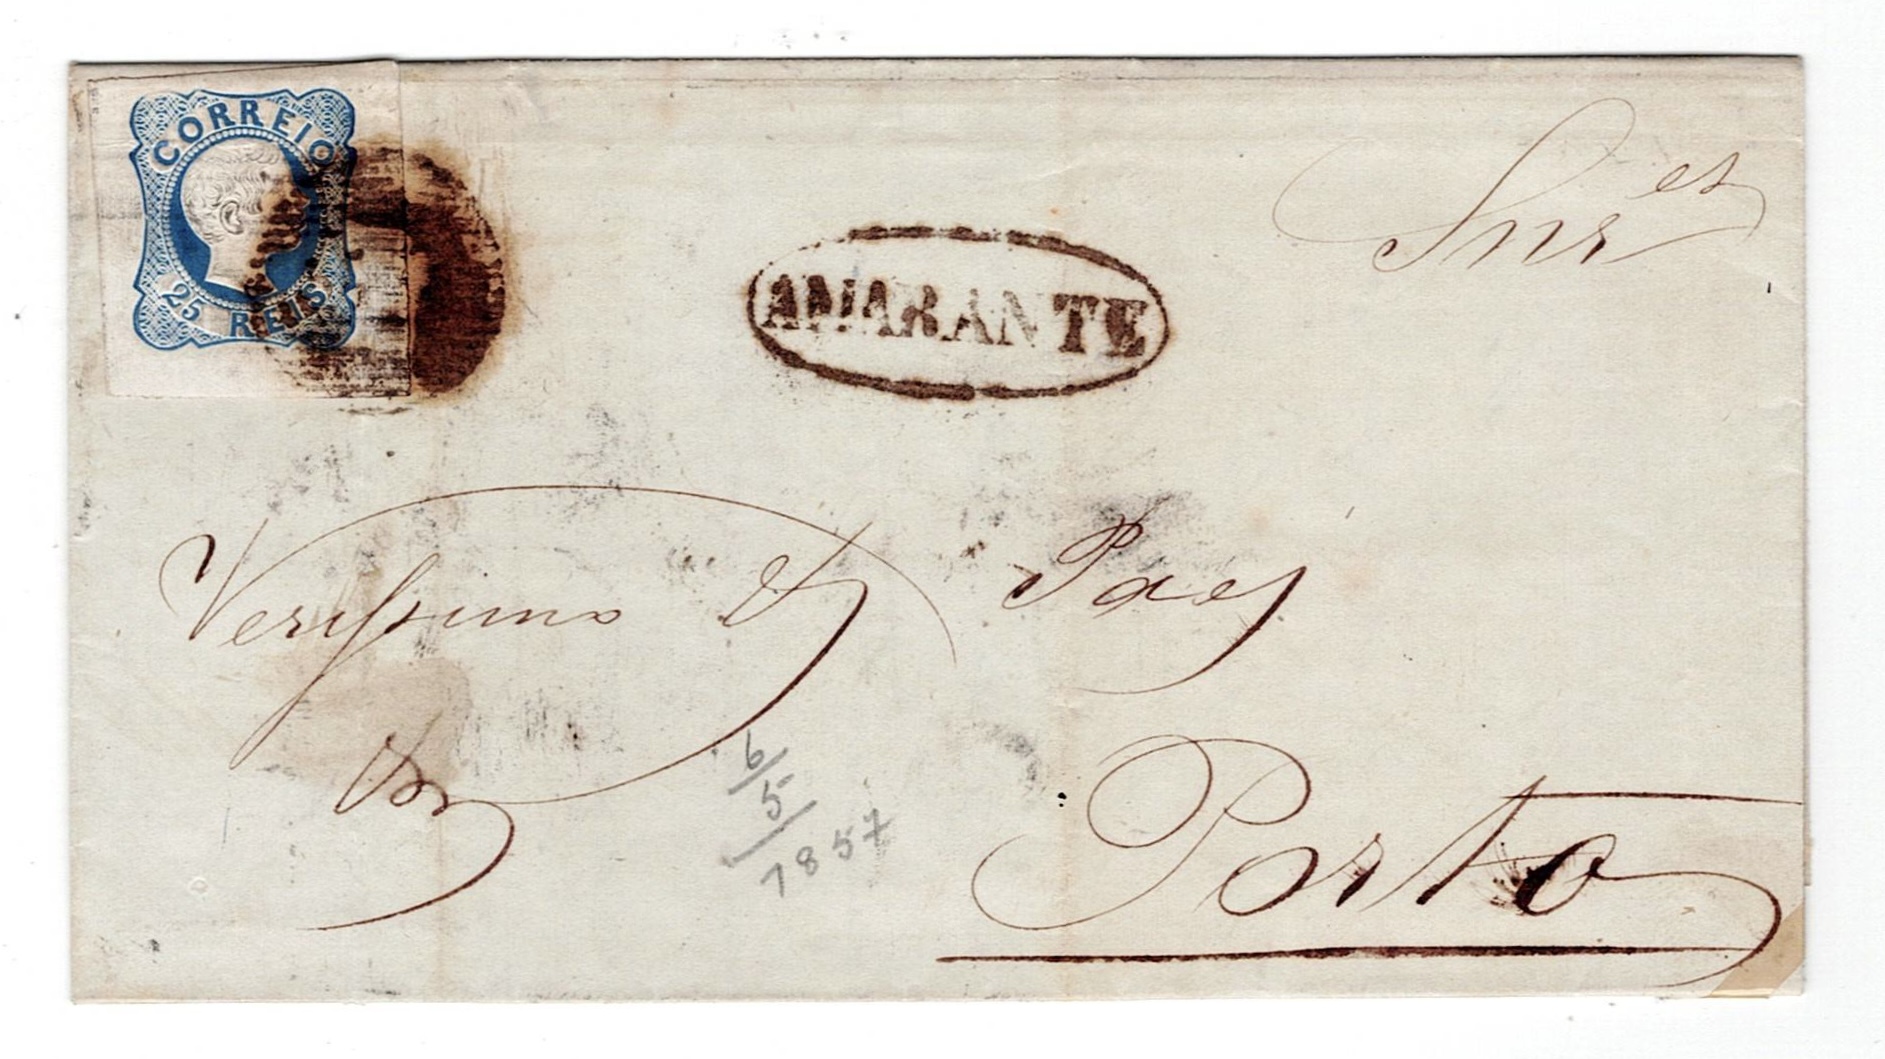 CORREIO
25 REIS
AMARANTE
Snr.es
Verissimo & Paes
Porto
6
5
1857